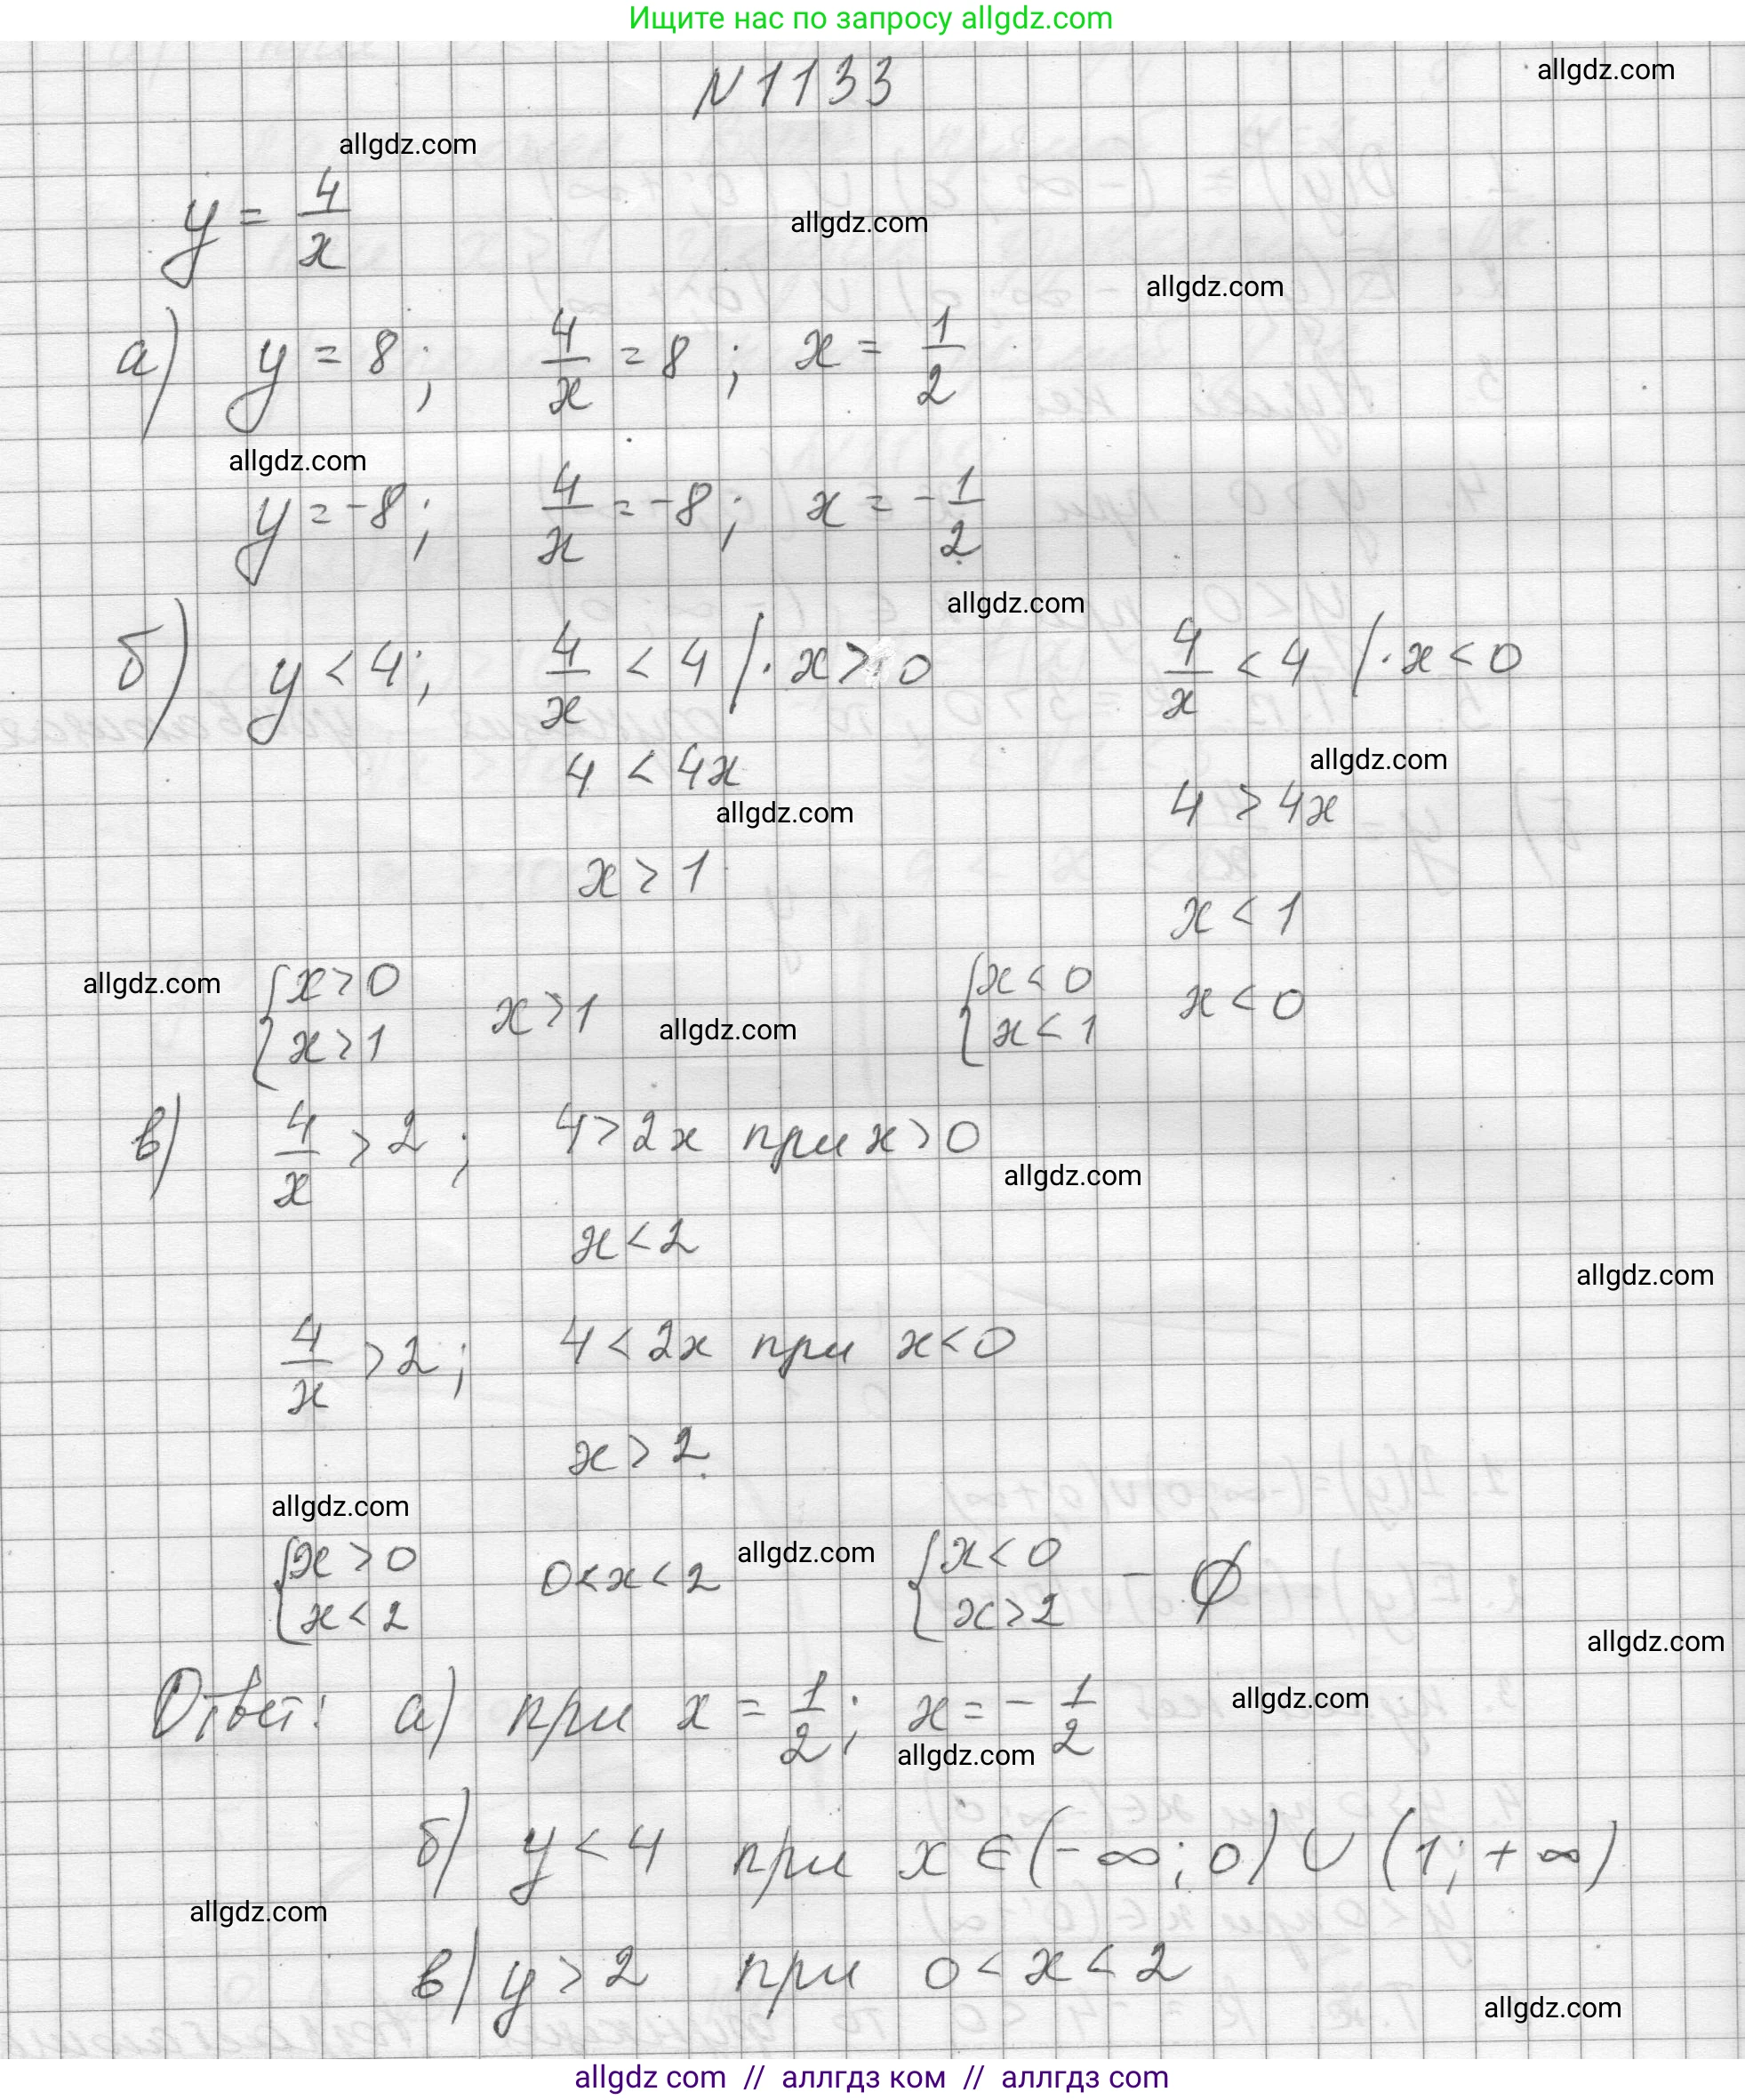 Ищите нас по запросу allgdz.com
N 1133
allgdz.com
allgdz.com
y = 4/x
allgdz.com
allgdz.com
а) y = 8; 4/x = 8; x = 1/2
allgdz.com
y = -8; 4/x = -8; x = -1/2
allgdz.com
б) y < 4; 4/x < 4 | · x > 0 4/x < 4 | · x < 0
allgdz.com
4 < 4x 4 > 4x
allgdz.com
x > 1 x < 1
allgdz.com
{ x > 0 x > 1 { x < 0 x < 0
x > 1 x < 1
allgdz.com
в) 4/x > 2; 4 > 2x при x > 0
allgdz.com
x < 2
allgdz.com
4/x > 2; 4 < 2x при x < 0
x > 2
allgdz.com
allgdz.com
{ x > 0 0 < x < 2 { x < 0 - ∅
x < 2 x > 2
allgdz.com
Ответ: а) при x = 1/2; x = -1/2
allgdz.com
allgdz.com
б) y < 4 при x ∈ (-∞; 0) ∪ (1; +∞)
allgdz.com
в) y > 2 при 0 < x < 2
allgdz.com
allgdz com // аллгдз ком // аллгдз com